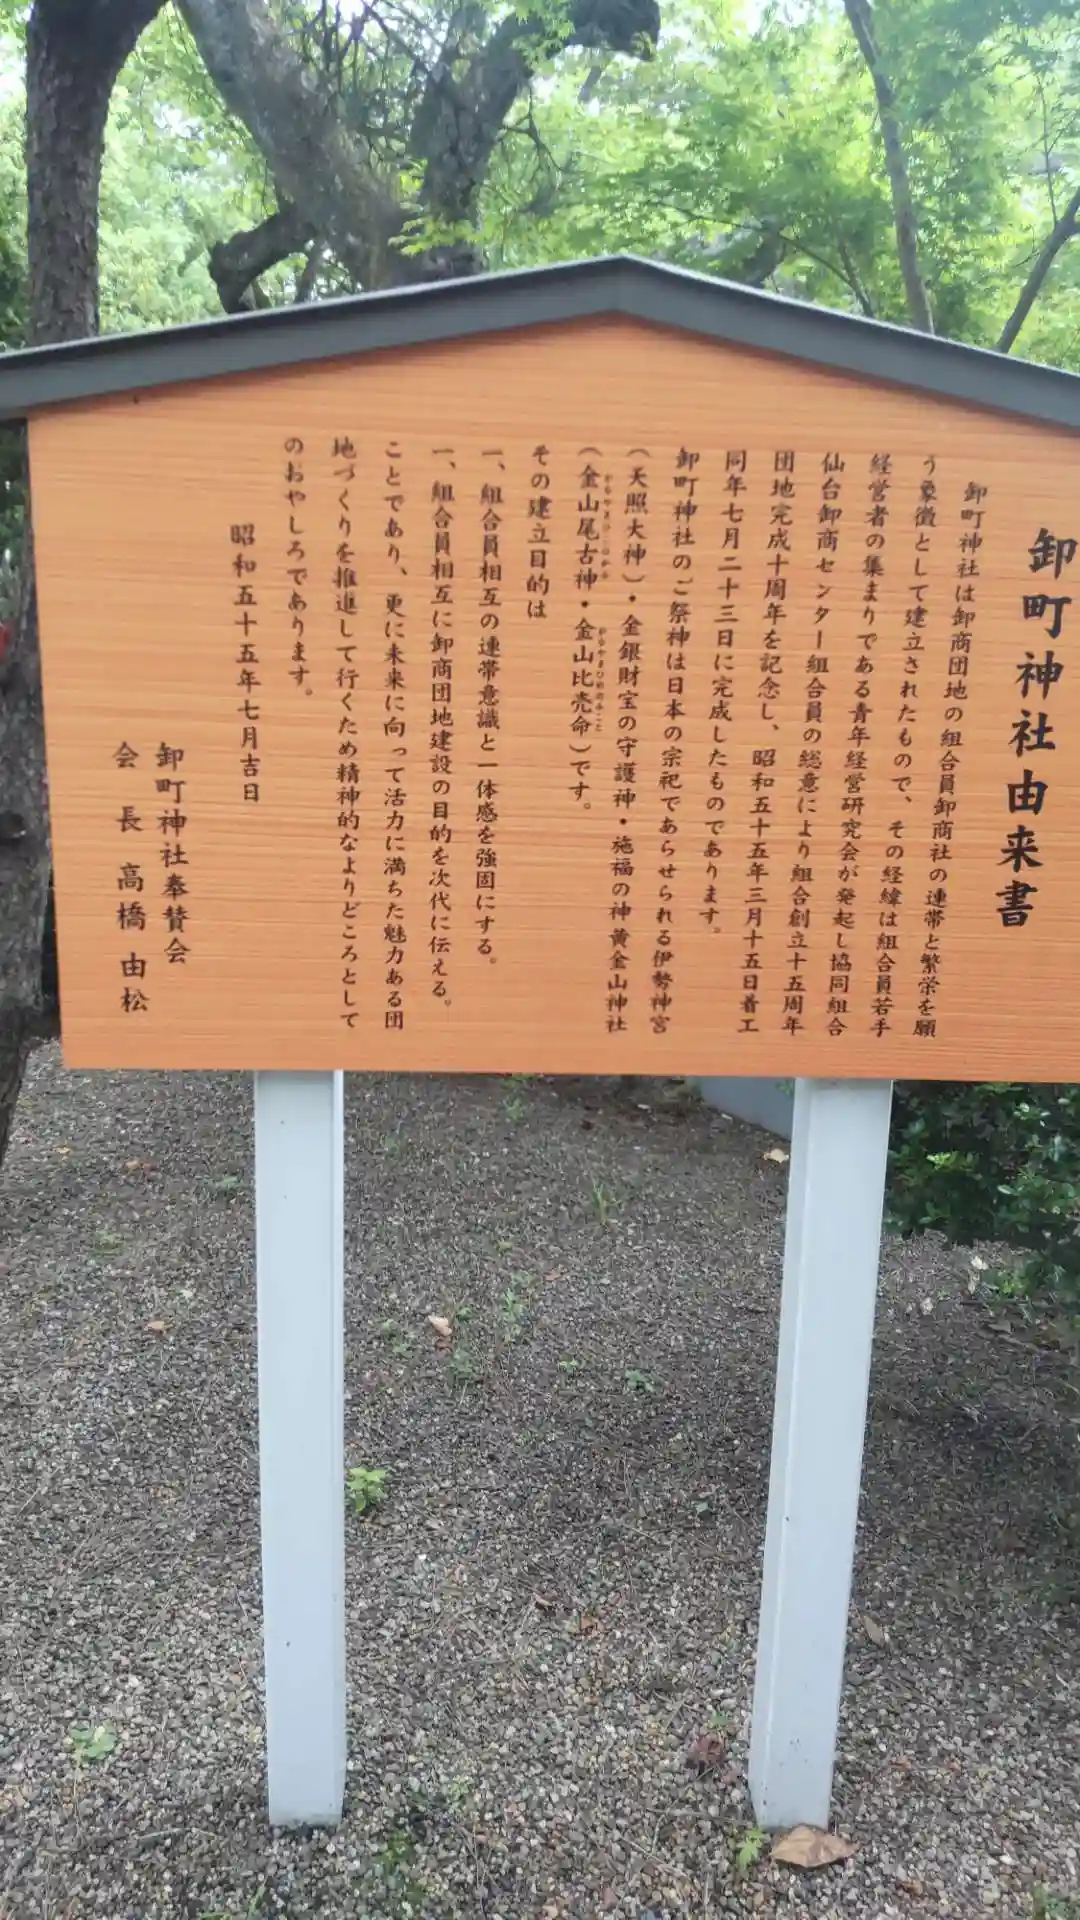 卸町神社由来書
卸町神社は卸商団地の組合員卸商社の連帯と繁栄を願
う象徴として建立されたもので、その経緯は組合員若手
経営者の集まりである青年経営研究会が発起し協同組合
仙台卸商センター組合員の総意により組合創立十五周年
団地完成十周年を記念し、昭和五十五年三月十五日着工
同年七月二十三日に完成したものであります。
卸町神社のご祭神は日本の宗祀であらせられる伊勢神宮
(天照大神)・金銀財宝の守護神・施福の神黄金山神社
(金山尾古神・金山比売命)です。
その建立目的は
一、組合員相互の連帯意識と一体感を強固にする。
一、組合員相互に卸商団地建設の目的を次代に伝える。
ことであり、更に未来に向って活力に満ちた魅力ある団
地づくりを推進して行くため精神的なよりどころとして
のおやしろであります。
昭和五十五年七月吉日
卸町神社奉賛会
会長 高橋由松